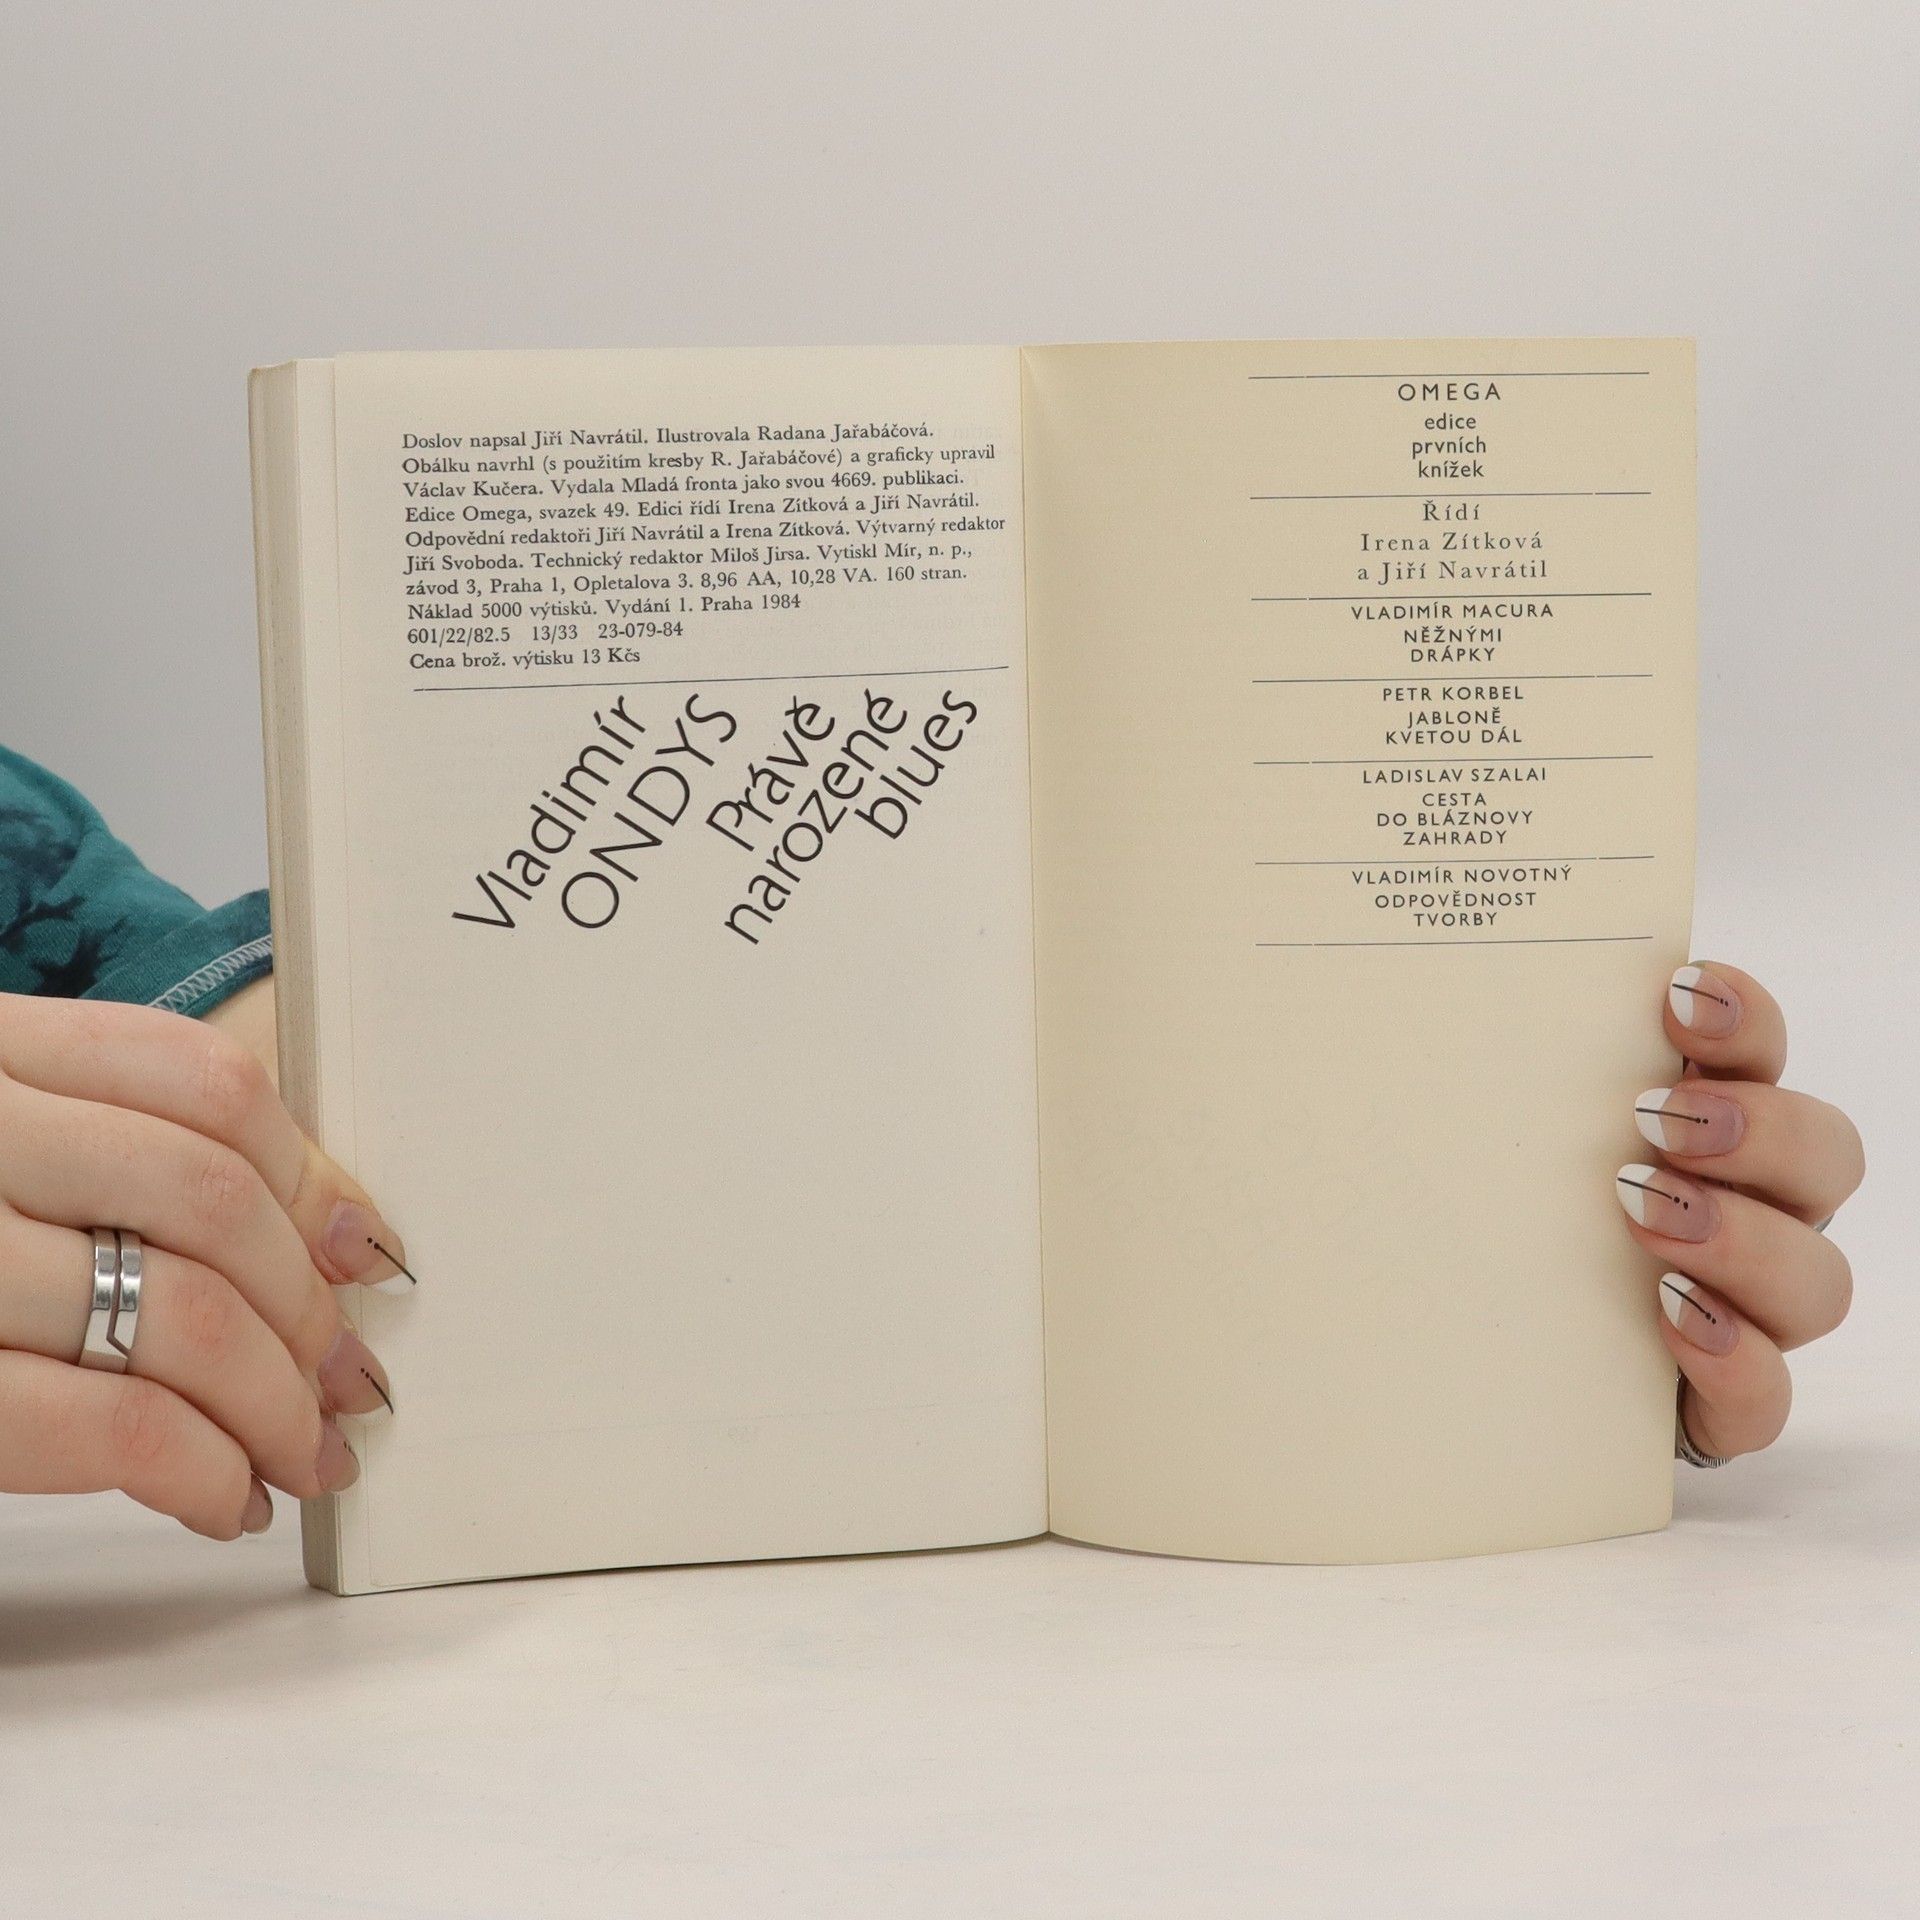 Doslov napsal Jiří Navrátil. Ilustrovala Radana Jařabáčová.
Obálku navrhl (s použitím kresby R. Jařabáčové) a graficky upravil
Václav Kučera. Vydala Mladá fronta jako svou 4669. publikaci.
Edice Omega, svazek 49. Edici řídí Irena Zítková a Jiří Navrátil.
Odpovědní redaktoři Jiří Navrátil a Irena Zítková. Výtvarný redaktor
Jiří Svoboda. Technický redaktor Miloš Jirsa. Vytiskl Mír, n. p.,
závod 3, Praha 1, Opletalova 3. 8,96 AA, 10,28 VA. 160 stran.
Náklad 5000 výtisků. Vydání 1. Praha 1984
601/22/82.5 13/33 23-079-84
Cena brož. výtisku 13 Kčs
Vladimír
ONDYS
Právě
narozené
blues
OMEGA
edice
prvních
knížek
Řídí
Irena Zítková
a Jiří Navrátil
VLADIMÍR MACURA
NĚŽNÝMI
DRÁPKY
PETR KORBEL
JABLONĚ
KVETOU DÁL
LADISLAV SZALAI
CESTA
DO BLÁZNOVY
ZAHRADY
VLADIMÍR NOVOTNÝ
ODPOVĚDNOST
TVORBY